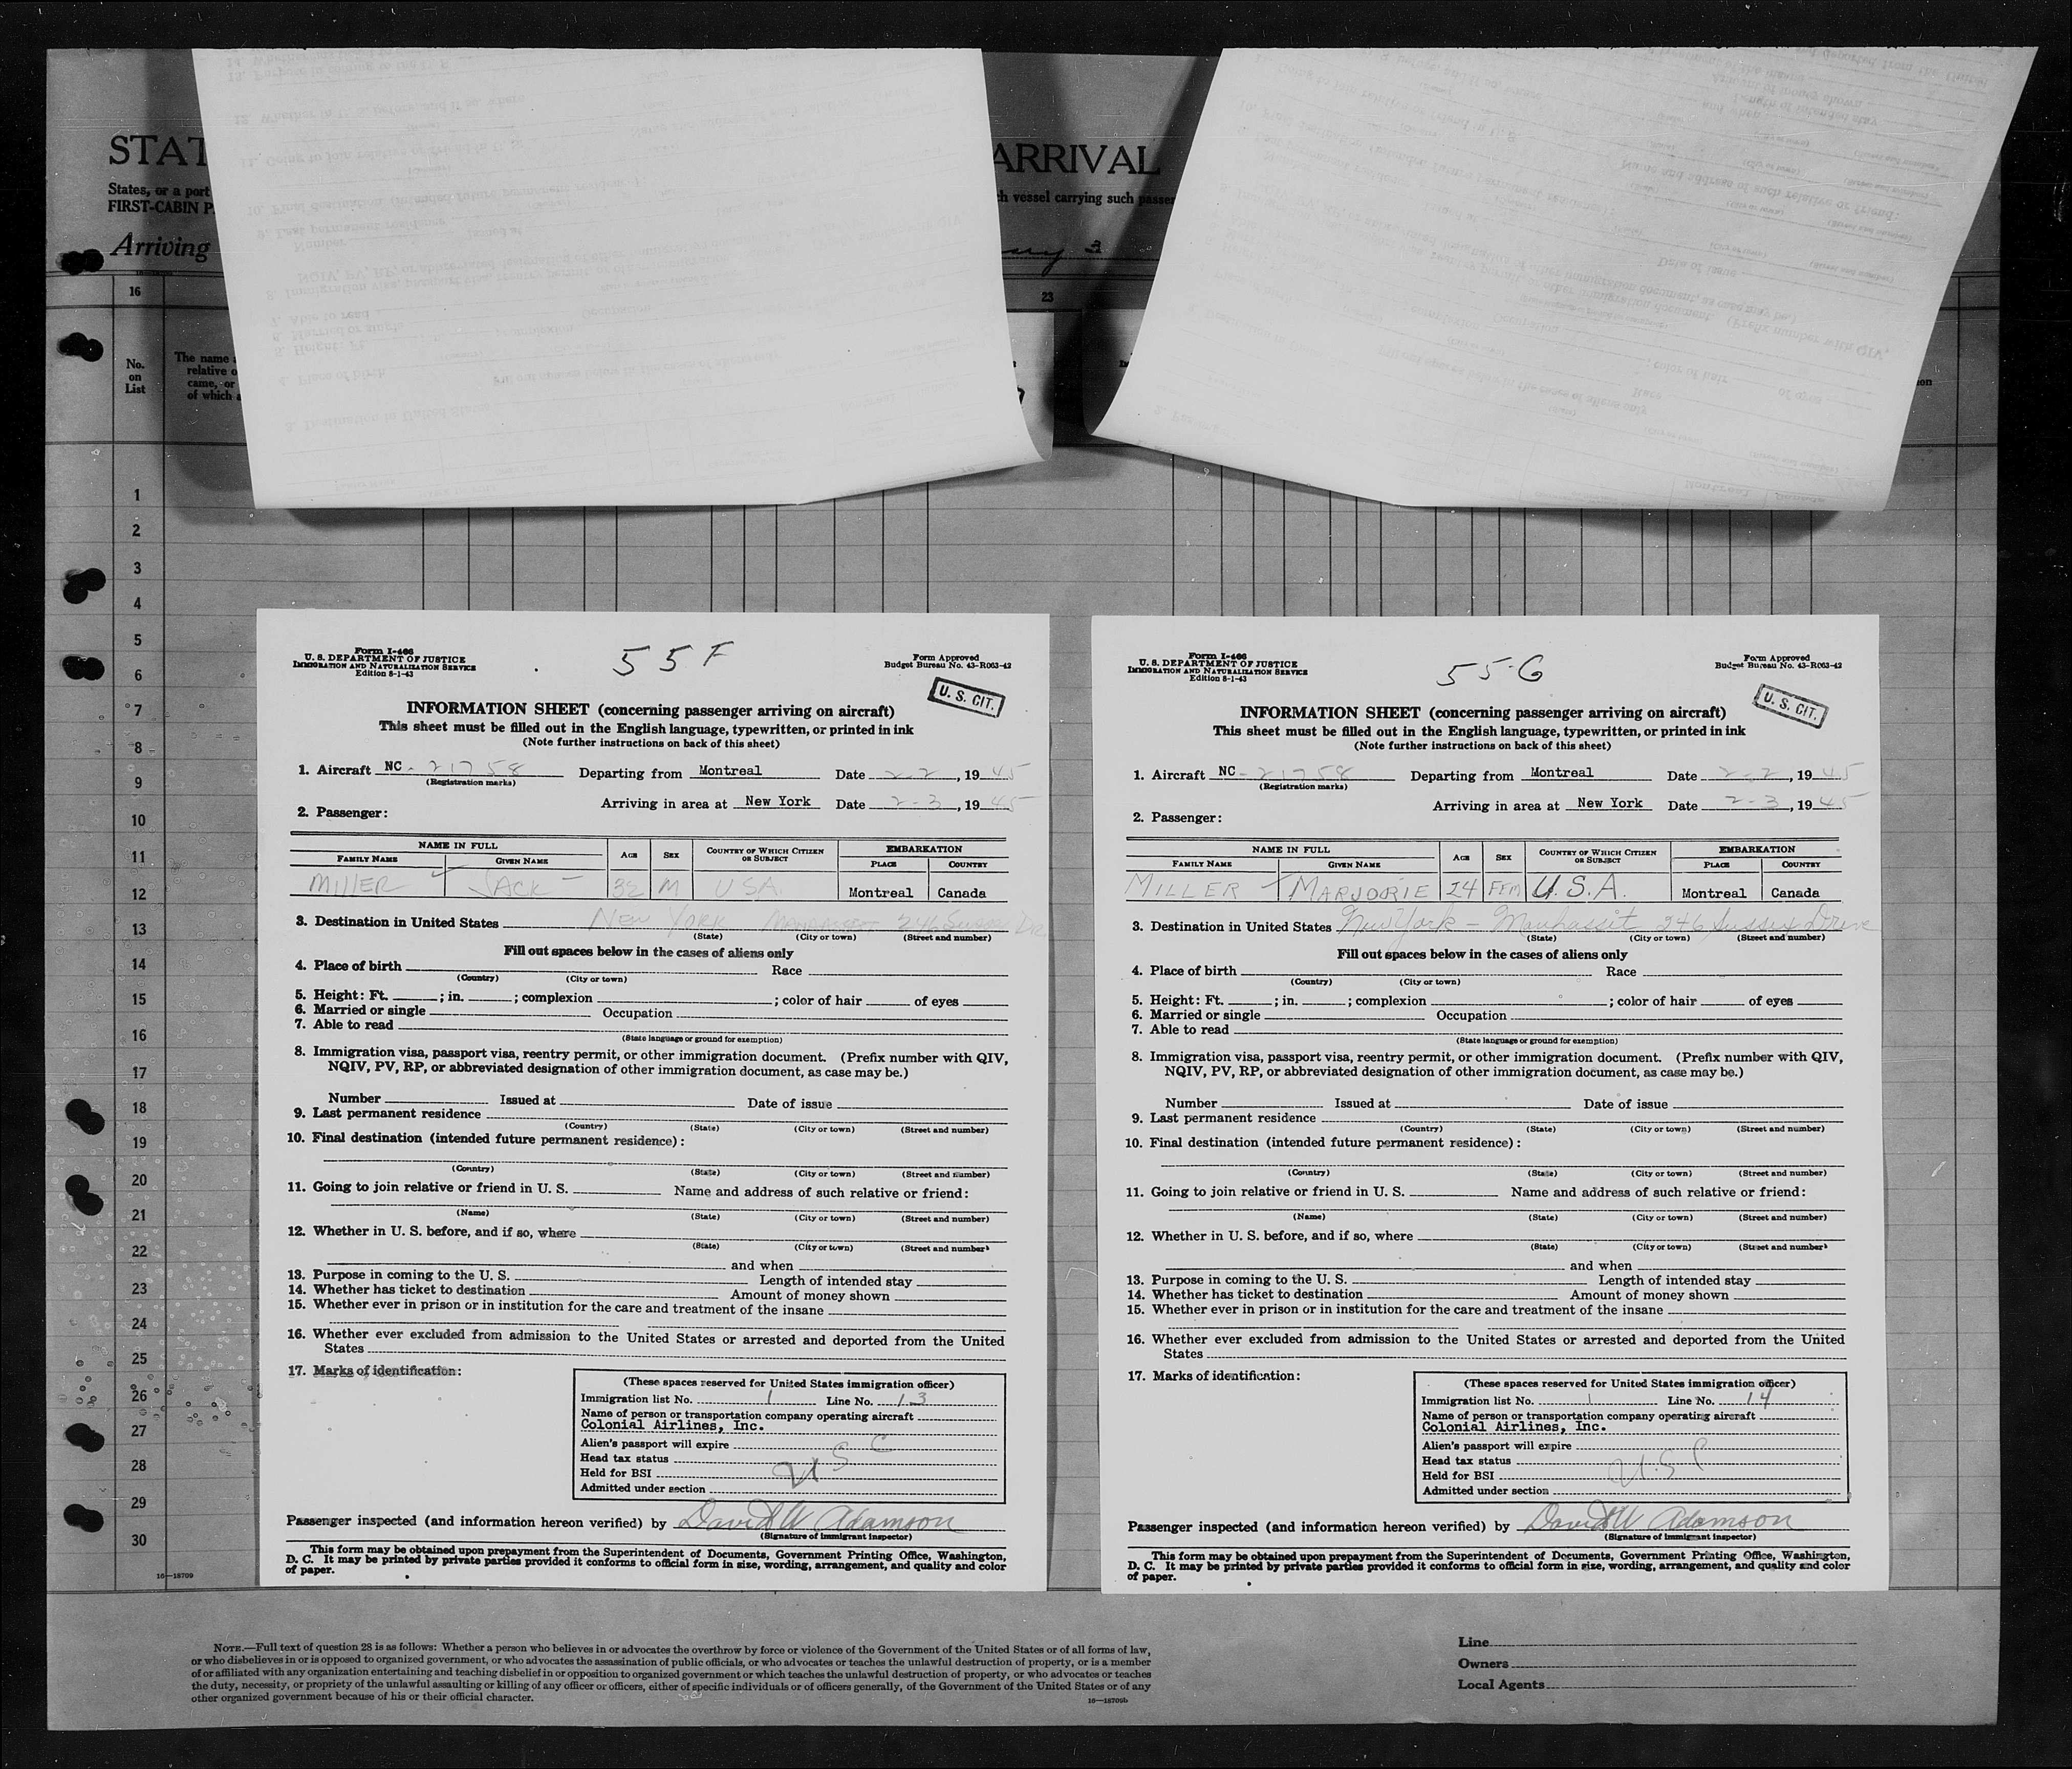 STAT
ARRIVAL
States, or a port
ch vessel carrying such passen
FIRST-CABIN P
Arriving
16
23
No.
on
List
The name
relative o
came, or
of which a
1
2
3
4
5
6
7
8
9
10
11
12
13
14
15
16
17
18
19
20
21
22
23
24
25
26
27
28
29
30
16—18709
Form I-466
U. S. DEPARTMENT OF JUSTICE
IMMIGRATION AND NATURALIZATION SERVICE
Edition 8-1-43
55 F
Form Approved
Budget Bureau No. 43-R063-42
U. S. CIT.
INFORMATION SHEET (concerning passenger arriving on aircraft)
This sheet must be filled out in the English language, typewritten, or printed in ink
(Note further instructions on back of this sheet)
1. Aircraft NC - 21758 Departing from Montreal Date 2-2, 1945
(Registration marks)
Arriving in area at New York Date 2-3, 1945
2. Passenger:
NAME IN FULL
FAMILY NAME GIVEN NAME AGE SEX COUNTRY OF WHICH CITIZEN OR SUBJECT EMBARKATION
PLACE COUNTRY
MILLER JACK 32 M USA Montreal Canada
3. Destination in United States NEW YORK MANHASSET 246 Sussex Dr.
(State) (City or town) (Street and number)
Fill out spaces below in the cases of aliens only
4. Place of birth Race
(Country) (City or town)
5. Height: Ft. ; in. ; complexion ; color of hair of eyes
6. Married or single Occupation
7. Able to read
(State language or ground for exemption)
8. Immigration visa, passport visa, reentry permit, or other immigration document. (Prefix number with QIV,
NQIV, PV, RP, or abbreviated designation of other immigration document, as case may be.)
Number Issued at Date of issue
9. Last permanent residence
(Country) (State) (City or town) (Street and number)
10. Final destination (intended future permanent residence):
(Country) (State) (City or town) (Street and number)
11. Going to join relative or friend in U. S. Name and address of such relative or friend:
(Name) (State) (City or town) (Street and number)
12. Whether in U. S. before, and if so, where
(State) (City or town) (Street and number)
and when
13. Purpose in coming to the U. S. Length of intended stay
14. Whether has ticket to destination Amount of money shown
15. Whether ever in prison or in institution for the care and treatment of the insane
16. Whether ever excluded from admission to the United States or arrested and deported from the United
States
17. Marks of identification:
(These spaces reserved for United States immigration officer)
Immigration list No. 1 Line No. 13
Name of person or transportation company operating aircraft
Colonial Airlines, Inc.
Alien's passport will expire
Head tax status
Held for BSI
Admitted under section
U S C
Passenger inspected (and information hereon verified) by David W Adamson
(Signature of immigrant inspector)
This form may be obtained upon prepayment from the Superintendent of Documents, Government Printing Office, Washington,
D. C. It may be printed by private parties provided it conforms to official form in size, wording, arrangement, and quality and color
of paper.
Form I-466
U. S. DEPARTMENT OF JUSTICE
IMMIGRATION AND NATURALIZATION SERVICE
Edition 8-1-43
55-G
Form Approved
Budget Bureau No. 43-R063-42
U. S. CIT.
INFORMATION SHEET (concerning passenger arriving on aircraft)
This sheet must be filled out in the English language, typewritten, or printed in ink
(Note further instructions on back of this sheet)
1. Aircraft NC - 21758 Departing from Montreal Date 2-2, 1945
(Registration marks)
Arriving in area at New York Date 2-3, 1945
2. Passenger:
NAME IN FULL
FAMILY NAME GIVEN NAME AGE SEX COUNTRY OF WHICH CITIZEN OR SUBJECT EMBARKATION
PLACE COUNTRY
MILLER MARJORIE 24 FEM U.S.A. Montreal Canada
3. Destination in United States New York - Manhassit 246 Sussex Drive
(State) (City or town) (Street and number)
Fill out spaces below in the cases of aliens only
4. Place of birth Race
(Country) (City or town)
5. Height: Ft. ; in. ; complexion ; color of hair of eyes
6. Married or single Occupation
7. Able to read
(State language or ground for exemption)
8. Immigration visa, passport visa, reentry permit, or other immigration document. (Prefix number with QIV,
NQIV, PV, RP, or abbreviated designation of other immigration document, as case may be.)
Number Issued at Date of issue
9. Last permanent residence
(Country) (State) (City or town) (Street and number)
10. Final destination (intended future permanent residence):
(Country) (State) (City or town) (Street and number)
11. Going to join relative or friend in U. S. Name and address of such relative or friend:
(Name) (State) (City or town) (Street and number)
12. Whether in U. S. before, and if so, where
(State) (City or town) (Street and number)
and when
13. Purpose in coming to the U. S. Length of intended stay
14. Whether has ticket to destination Amount of money shown
15. Whether ever in prison or in institution for the care and treatment of the insane
16. Whether ever excluded from admission to the United States or arrested and deported from the United
States
17. Marks of identification:
(These spaces reserved for United States immigration officer)
Immigration list No. 1 Line No. 14
Name of person or transportation company operating aircraft
Colonial Airlines, Inc.
Alien's passport will expire
Head tax status
Held for BSI
Admitted under section
U.S C
Passenger inspected (and information hereon verified) by David W Adamson
(Signature of immigrant inspector)
This form may be obtained upon prepayment from the Superintendent of Documents, Government Printing Office, Washington,
D. C. It may be printed by private parties provided it conforms to official form in size, wording, arrangement, and quality and color
of paper.
NOTE.—Full text of question 28 is as follows: Whether a person who believes in or advocates the overthrow by force or violence of the Government of the United States or of all forms of law,
or who disbelieves in or is opposed to organized government, or who advocates the assassination of public officials, or who advocates or teaches the unlawful destruction of property, or is a member
of or affiliated with any organization entertaining and teaching disbelief in or opposition to organized government or which teaches the unlawful destruction of property, or who advocates or teaches
the duty, necessity, or propriety of the unlawful assaulting or killing of any officer or officers, either of specific individuals or of officers generally, of the Government of the United States or of any
other organized government because of his or their official character.
16—18709b
Line
Owners
Local Agents